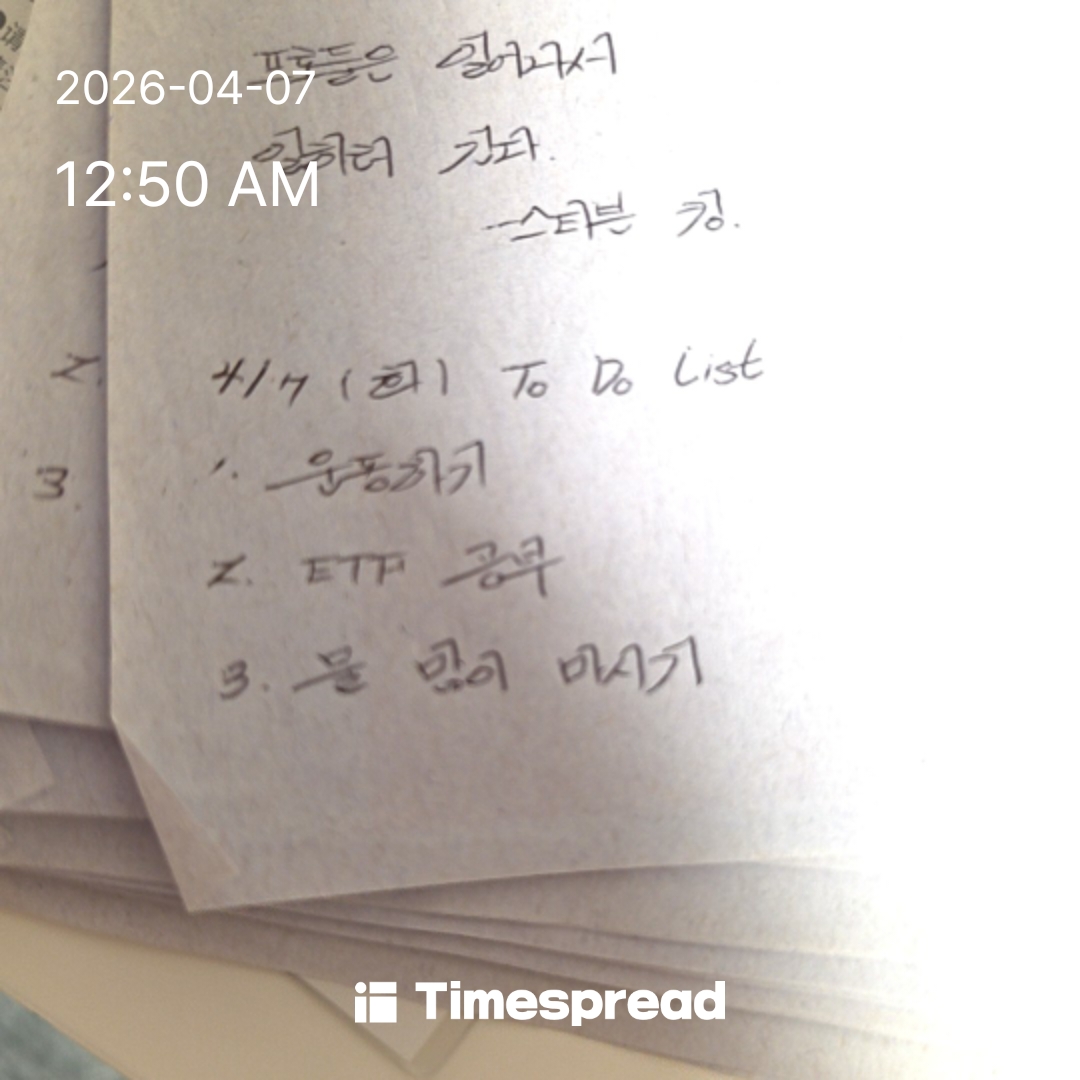 2026-04-07
12:50 AM
프로들은 일어나서
일하러 간다.
-스티븐 킹.
4/7 (화) To Do List
1. 운동하기
2. ETF 공부
3. 물 많이 마시기
2.
3.
Timespread